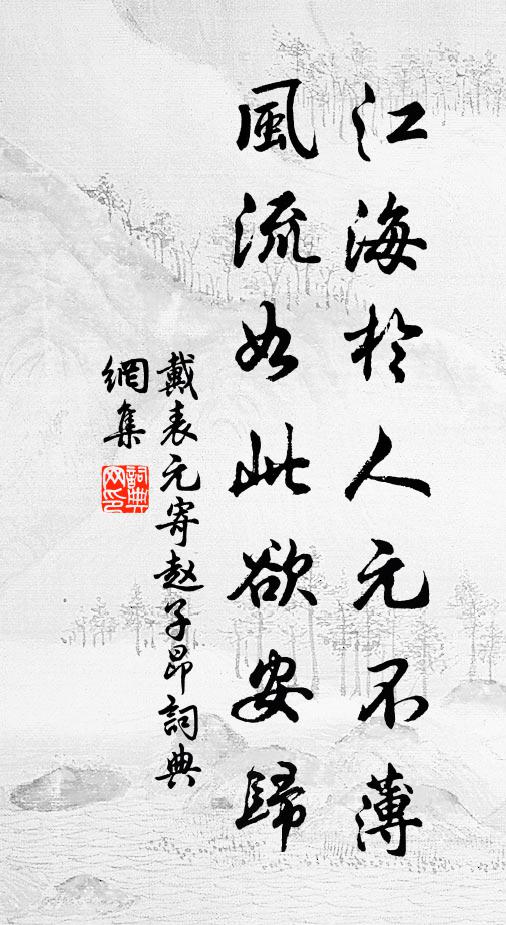 江海於人元不薄
風流如此欲安歸
戴表元寄赵子昂詞典
網集
詞典網印